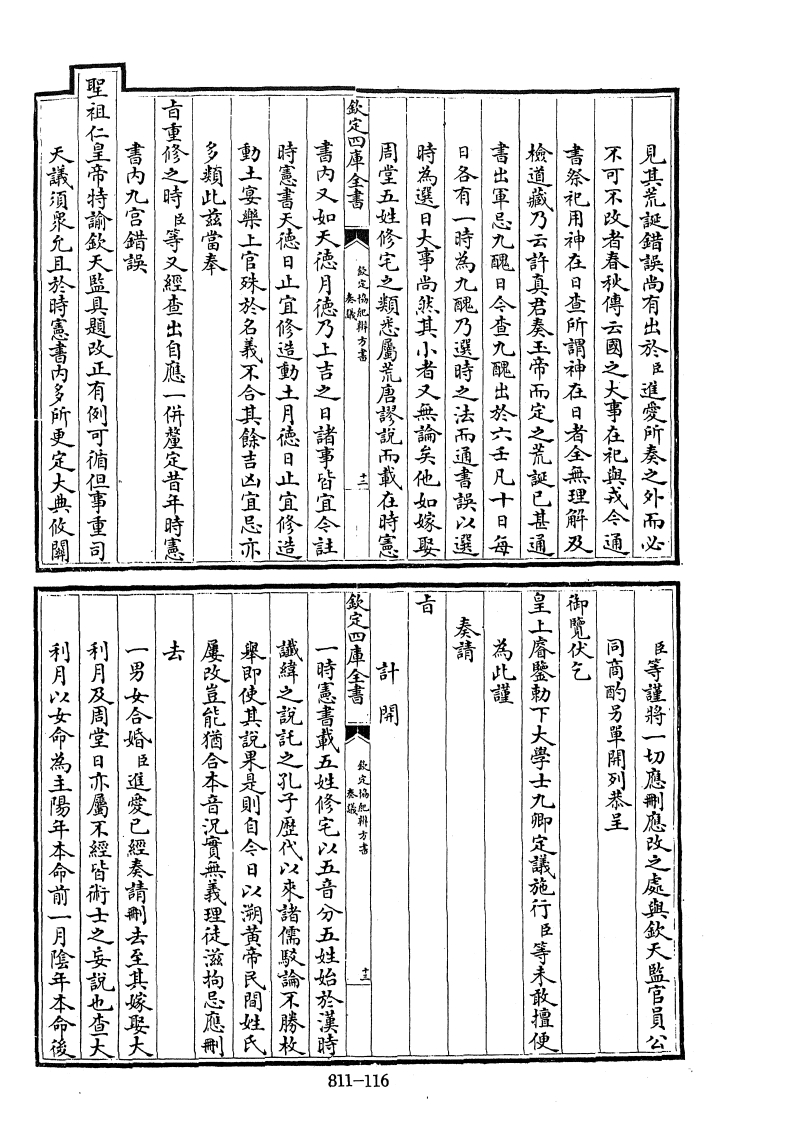 見其荒誕錯誤尚有出於臣進愛所奏之外而必
不可不改者春秋傳云國之大事在祀與戎今通
書祭祀用神在日查所謂神在日者全無理解及
檢道藏乃云許真君奏玉帝而定之荒誕已甚通
書出軍忌九醜日今查九醜出於六壬凡十日每
日各有一時為九醜乃選時之法而通書誤以選
時為選日大事尚然其小者又無論矣他如嫁娶
周堂五姓修宅之類悉屬荒唐謬說而載在時憲
欽定四庫全書
欽定協紀辨方書
奏議
十二
書内又如天德月德乃上吉之日諸事皆宜今註
時憲書天德日止宜修造動土月德日止宜修造
動土宴樂上官殊於名義不合其餘吉凶宜忌亦
多類此茲當奉
旨重修之時臣等又經查出自應一併釐定昔年時憲
書内九宮錯誤
聖祖仁皇帝特諭欽天監具題改正有例可循但事重司
天議須衆允且於時憲書内多所更定大典攸關
臣等謹將一切應刪應改之處與欽天監官員公
同商酌另單開列恭呈
御覽伏乞
皇上睿鑒勅下大學士九卿定議施行臣等未敢擅便
為此謹
奏請
旨
計開
欽定四庫全書
欽定協紀辨方書
奏議
十三
一時憲書載五姓修宅以五音分五姓始於漢時
讖緯之說託之孔子歷代以來諸儒駮論不勝枚
舉即使其說果是則自今日以溯黃帝民間姓氏
屢改豈能猶合本音況實無義理徒滋拘忌應刪
去
一男女合婚臣進愛已經奏請刪去至其嫁娶大
利月及周堂日亦屬不經皆術士之妄說也查大
利月以女命為主陽年本命前一月陰年本命後
811-116